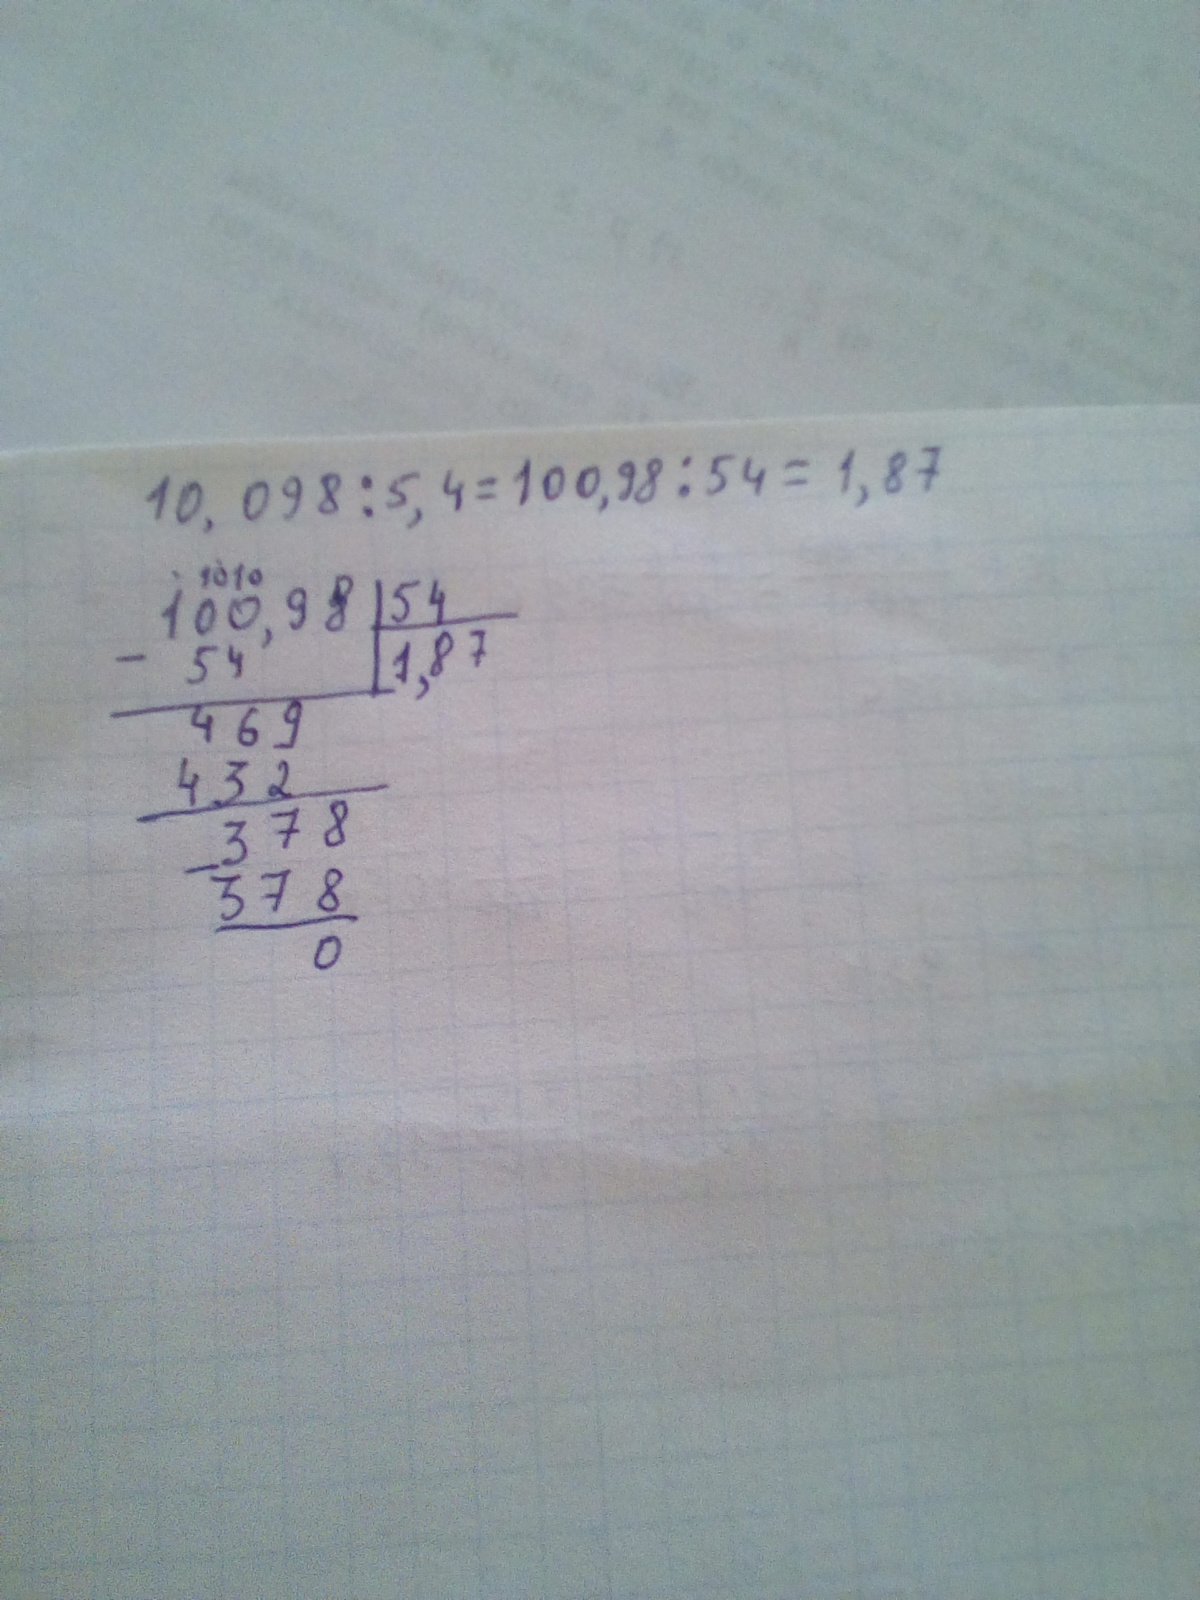 10,098:5,4=100,98:54=1,87
1010
100,98 54
- 54 1,87
469
432
378
-
378
0